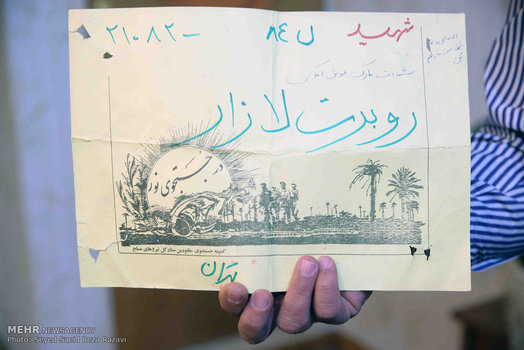 شهید ل ۸۴ ۲۱۰۸۲ -
شهادت مبارک
روبرت لازار
در جستجوی نور
کمیته جستجوی مفقودین ستاد کل نیروهای مسلح
تهران
MEHR NEWSAGENCY
Photo: Seyed Saeid Reza Razavi